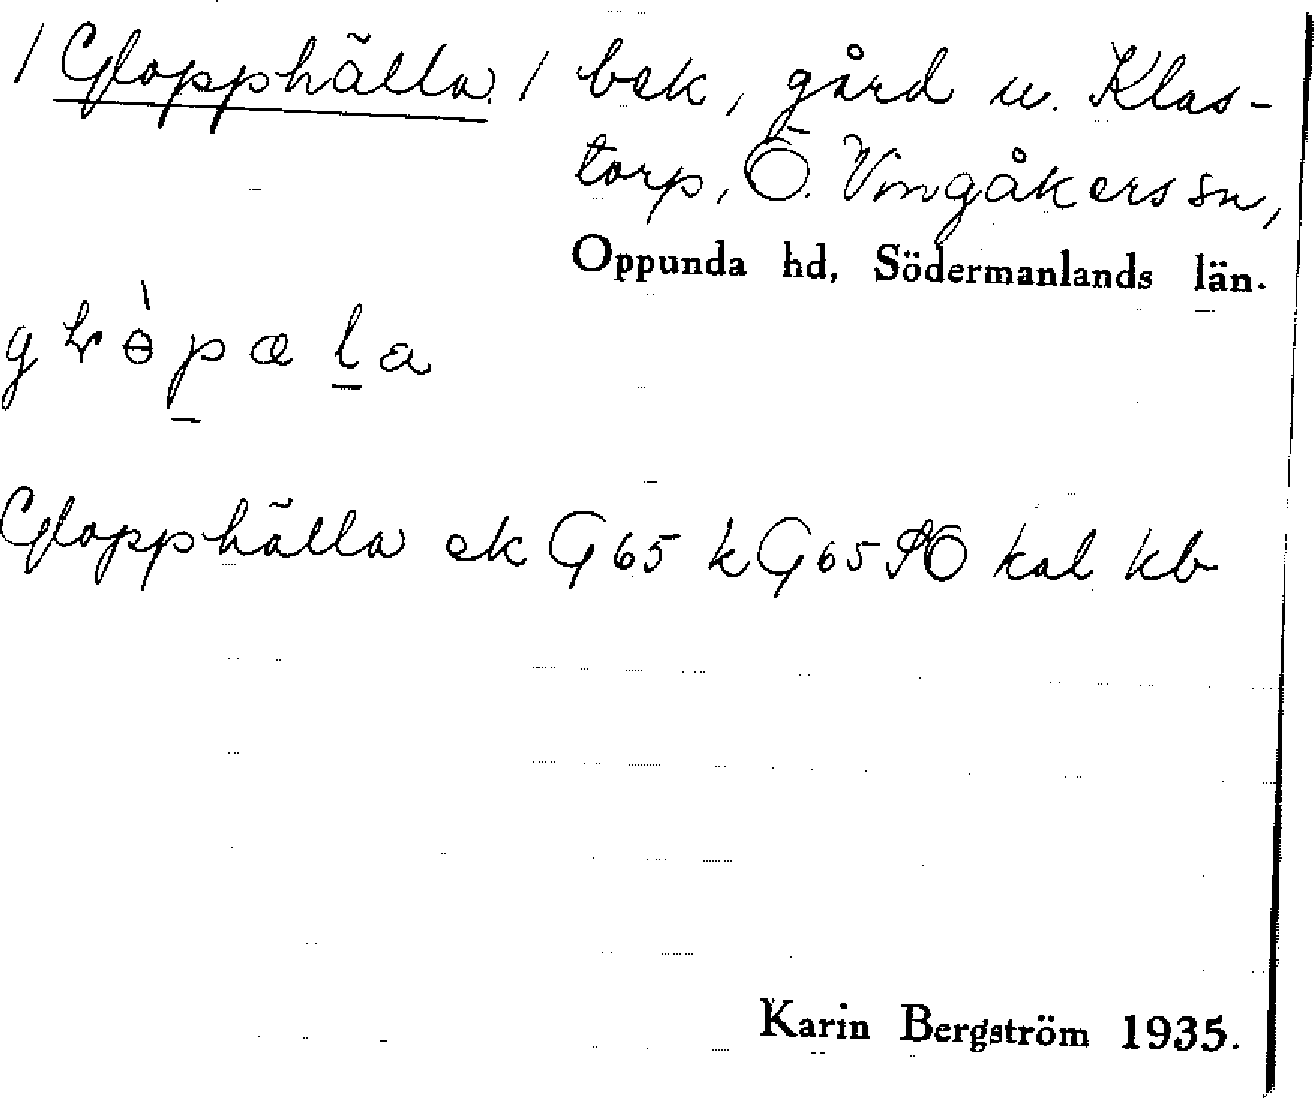 / Glopphälla / bek, gård u. Klas-
torp, Ö. Vingåkers sn,
Oppunda hd, Södermanlands län.
Glopphälla ek G 65 k G 65 ÄO kal kb
Karin Bergström 1935.